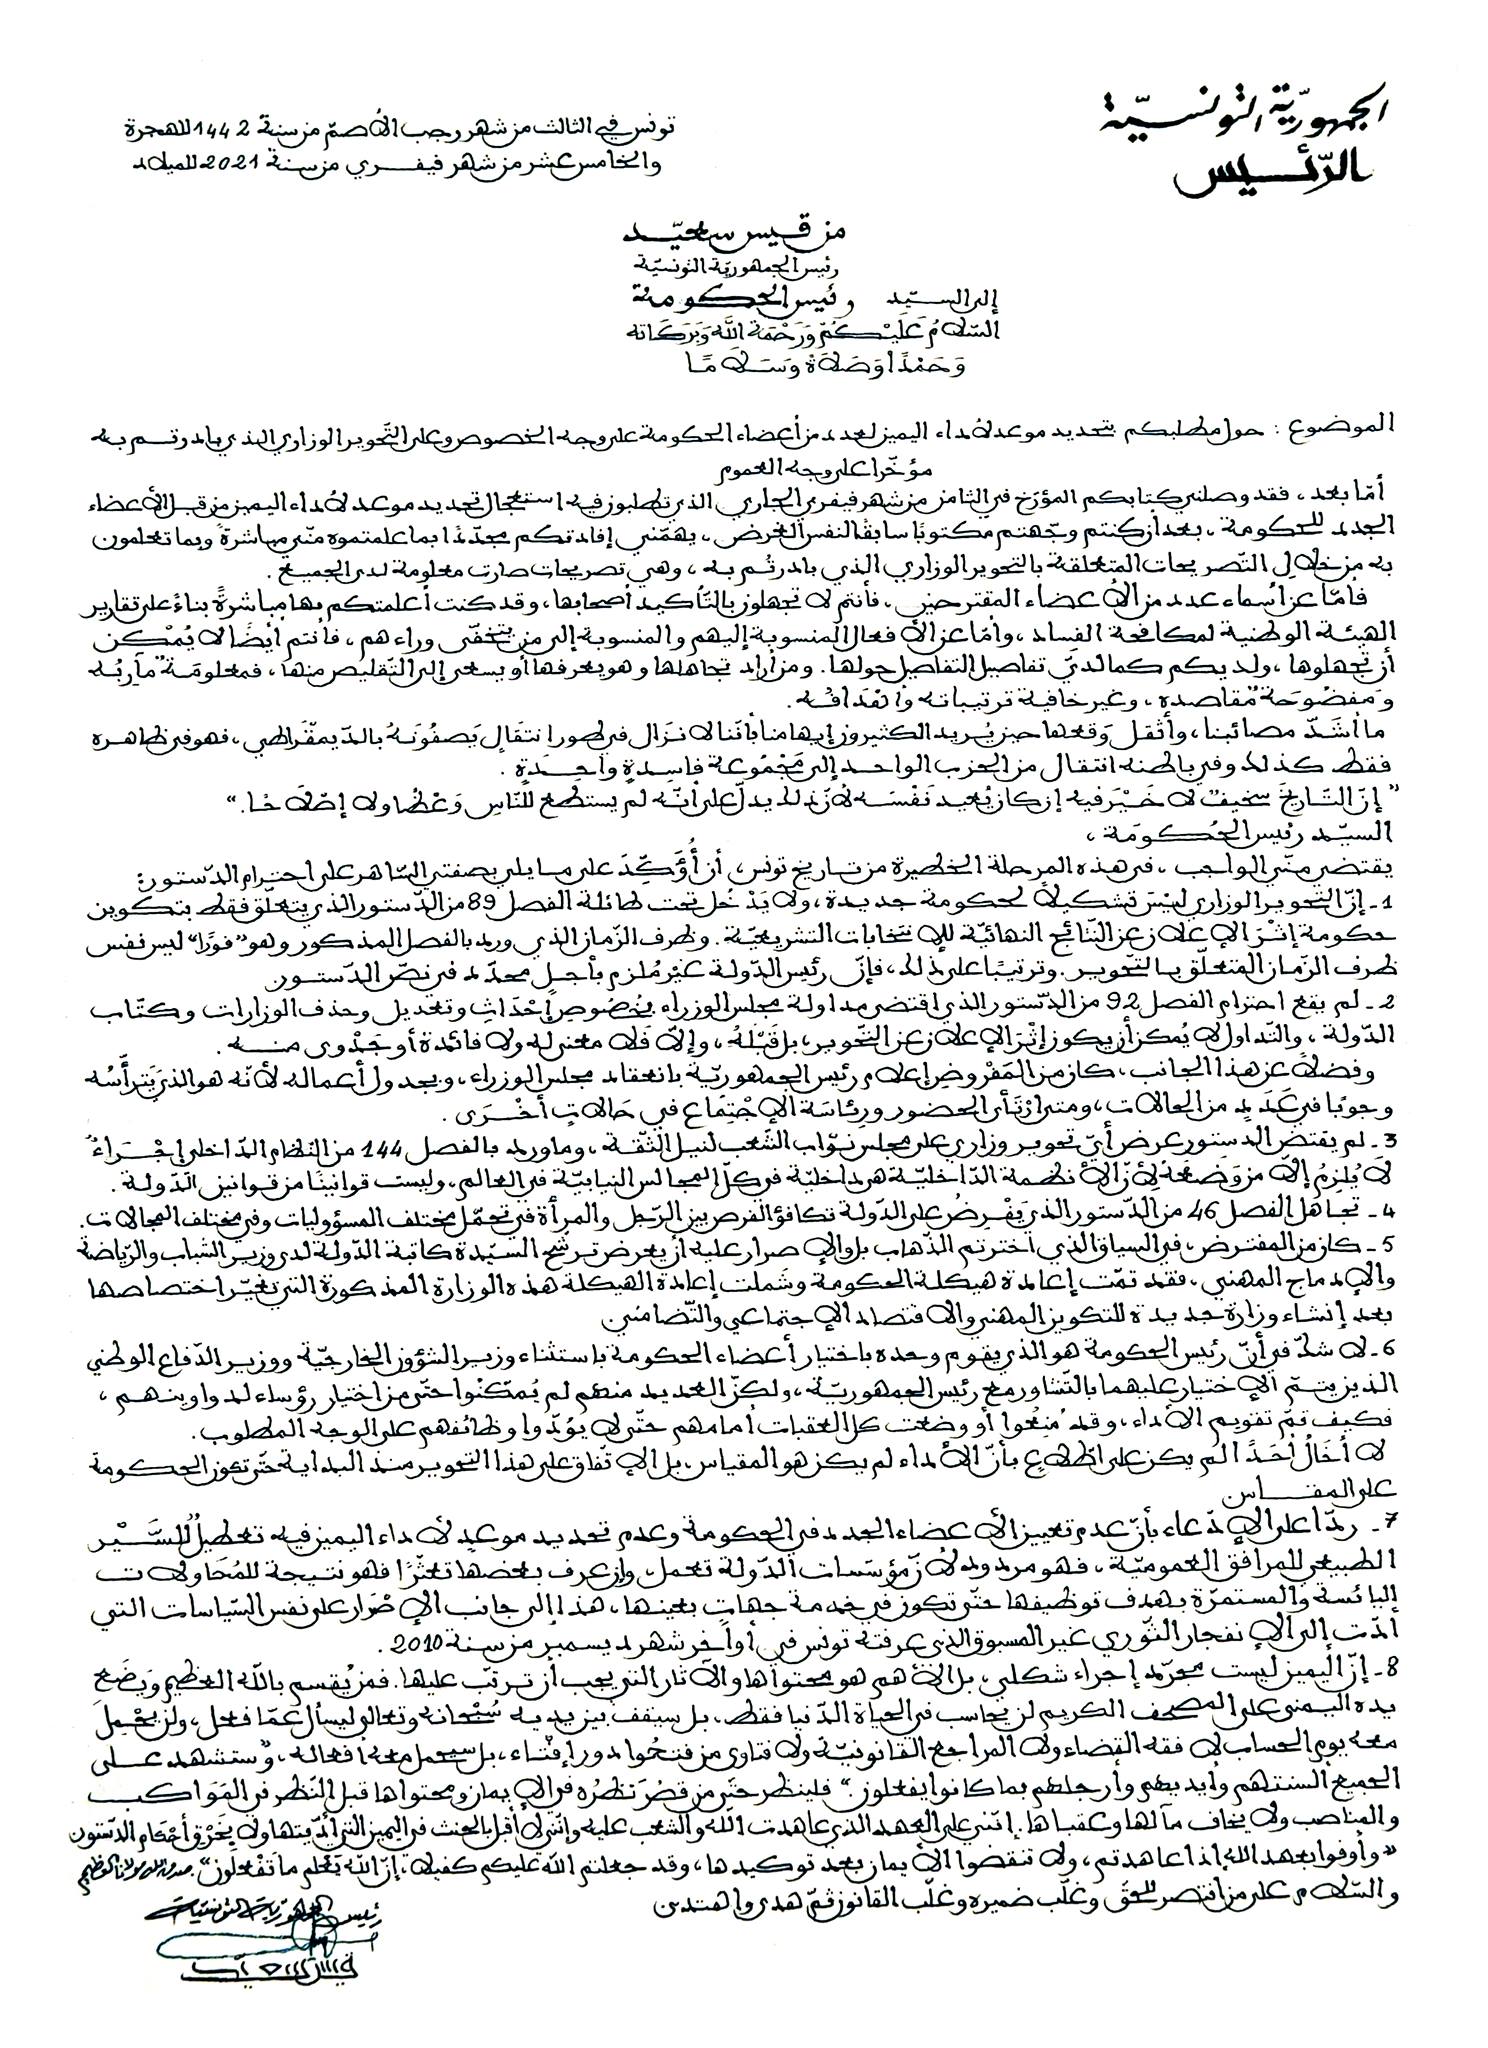 الجمهوريّة التونسيّة
الرّئيس
تونس في الثالث من شهر رجب الأصمّ من سنة 1442 للهجرة
والخامس عشر من شهر فيفري من سنة 2021 للميلاد
من قيس سعيّد
رئيس الجمهوريّة التونسيّة
إلى السيّد رئيس الحكومة
السّلامُ عَلَيْكُمْ وَرَحْمَة اللَّه وَبَرَكَاته
وَحَمْدًا وَصَلَاةً وَسَلَامًا
الموضوع : حول مطلبكم بتحديد موعد لأداء اليمين لعدد من أعضاء الحكومة على وجه الخصوص وعلى التّحوير الوزاري الذي بادرتم به
مؤخّرا على وجه العموم
أمّا بعد، فقد وصلني كتابكم المؤرّخ في الثامن من شهر فيفري الجاري الذي تطلبون فيه استعجال تحديد موعد لأداء اليمين من قبل الأعضاء
الجدد للحكومة، بعد أن كنتم وجّهتم مكتوبًا سابقًا لنفس الغرض، يهمّني إفادتكم مجدّدًا بما علمتموه منّي مباشرةً وبما تعلمون
به من خلال التّصريحات المتعلّقة بالتحوير الوزاري الذي بادرتُم به، وهي تصريحات صارت معلومة لدى الجميع.
فأمّا عن أسماء عدد من الأعضاء المقترحين، فأنتم لا تجهلون بالتّأكيد أصحابها، وقد كنت أعلمتكم بها مباشرةً بناءً على تقارير
الهيئة الوطنية لمكافحة الفساد، وأمّا عن الأفعال المنسوبة إليهم والمنسوبة إلى من يتخفّى وراءهم، فأنتم أيضًا لا يُمْكن
أن تجهلوها، ولديكم كما لديّ تفاصيل التفاصيل حولها. ومن أراد تجاهلها وهو يعرفها أو يسعى إلى التّقليص منها، فمعلومَة مآربُه
وَمفضُوحَة مقاصده، وغير خافية ترتيباته وأهْدَافُه.
ما أشدّ مصائبنا، وأثقل وَقعها حين يُريد الكثيرون إيهامنا بأنّنا لا نزال في طور انتقال يَصفُونَهُ بالدّيمقْرَاطي، فهو في ظاهره
فقط كذلك وفي باطنه انتقال من الحزب الواحد إلى مَجْمُوعة فاسدةٍ واحدَةٍ.
"إنّ التّاريخَ سخيفٌ لا خَيْرَ فيه إن كان يُعيد نَفْسَه لأنّ ذلك يدلّ على أنّه لم يستطع للنّاسِ وَعْظًا ولا إصْلَاحًا."
السيّد رئيس الحُكُومَة،
يقتضي منّي الواجب، في هذه المرحلة الخطيرة من تاريخ تونس، أن أُؤَكِّدَ على ما يلي بصفتي السّاهر على احترام الدّستور:
1- إنّ التّحوير الوزاري ليْسَ تشكيلًا لحكومة جديدة، ولا يَدْخُل تحت طائلة الفصل 89 من الدّستور الذي يتعلّق فقط بتكوين
حكومة إثْرَ الإعلان عن النّتائج النهائيّة للإنتخابات التشريعيّة. وظرف الزّمان الذي ورد بالفصل المذكور وهو "فورًا" ليس نفس
ظرف الزّمان المتعلّق بالتّحوير. وترتيبًا على ذلك، فإنّ رئيس الدّولة غيْر مُلزم بأجلٍ محدّد في نصّ الدّستور
2- لم يقع احترام الفصل 92 من الدّستور الذي اقتضى مداولة مجلس الوزراء بخُصُوصِ إحْدَاثِ وتعديل وحذف الوزارات وكتّاب
الدّولة، والتّداول لا يُمكن أن يكون إثْرَ الإعلان عن التّحوير، بل قَبْلَهُ، وإلّا فَلا معنى له ولا فائدة أو جَدْوى منه.
وفضلًا عن هذا الجانب، كان من المَفْروضِ إعلام رئيس الجمهوريّة بانعقاد مجلس الوزراء، وبجدول أعماله لأنّه هو الذي يَتَرَأَّسُه
وجوبًا في عَدَدٍ من الحالات، ومتى ارْتَأى الحضور ورئاسَة الإجْتِمَاع في حَالَاتٍ أخْرَى.
3- لم يقتض الدستور عرض أيّ تحوير وزاري على مجلس نوّاب الشّعب لنيل الثّقة، وما ورد بالفصل 144 من النّظام الدّاخلي إجْرَاءٌ
لَا يُلزِمُ إلّا من وَضعهُ لأنّ الأنظمة الدّاخليّة هي داخليّة في كلّ المجالس النيابيّة في العالم، وليست قوانينًا من قوانين الدّولة.
4- تجاهل الفصل 46 من الدّستور الذي يَفْرضُ على الدّولة تكافؤ الفرص بين الرّجل والمرأة في تحمّل مختلف المسؤوليات وفي مختلف المجالات.
5- كان من المفترض، في السياق الذي اخترتم الذّهاب بل والإصرار عليه أن يعرض ترشح السيّدة كاتبة الدّولة لدى وزير الشباب والرّياضة
والإدماج المهني، فقد تمّت إعادة هيكلة الحكومة وشَملت إعادة الهيكلة هذه الوزارة المذكورة التي تغيّر اختصاصها
بعد إنشاء وزارة جديدة للتكوين المهني والاقتصاد الإجتماعي والتّضامني
6- لا شكّ في أنّ رئيس الحكومة هو الذي يقوم وحده باختيار أعضاء الحكومة باستثناء وزير الشؤون الخارجيّة ووزير الدّفاع الوطني
الذين يتمّ الإختيار عليهما بالتّشاور مع رئيس الجمهوريّة، ولكنّ العديد منهم لم يُمكّنوا حتّى من اختيار رؤساء لدواوينهم،
فكيف تمّ تقويم الأداء، وقد مُنِعُوا أو وضعت كل العقبات أمامهم حتّى لا يؤدّوا وظائفهم على الوجه المطلوب.
لا أخَالُ أحَدًا لم يكن على اطّلاع بأنّ الأداء لم يكن هو المقياس، بل الإتّفاق على هذا التّحوير منذ البداية حتّى تكون الحكومة
على المقاس
7- ردّا على الإدّعاء بأنّ عدم تعيين الأعضاء الجدد في الحكومة وعدم تحديد موعدٍ لأداء اليمين فيه تعطيلٌ للسَّيْر
الطبيعي للمرافق العموميّة، فهو مردود لأنّ مؤسّسات الدّولة تعمل، وإن عرف بعضها تعثّرًا فهو نتيجة للمُحَاولات
البائسة والمستمرّة بهدف توظيفها حتّى تكون في خدمة جهاتٍ بعينها، هذا إلى جانب الإصْرَار على نفس السّياسات التي
أدّت إلى الإنفجار الثّوري غير المسبوق الذي عرفته تونس في أواخر شهر ديسمبر من سنة 2010.
8- إنّ اليمين ليست مجرّد إجراء شكلي، بل الأهم هو محتواها والآثار التي يجب أن ترتّب عليها. فمن يُقسم باللّه العظيم وَيَضَع
يده اليمنى على المصحف الكريم لن يحاسب في الحياة الدّنيا فقط، بل سيقف بين يديه سُبْحانه وتعالى ليسأل عمّا فعل، ولن يَحْملَ
معه يوم الحساب لا فقه القضاء ولا المراجع القانونيّة ولا فتاوى من فتحُوا دور إفْتاء، بل سيحمل معه أفعاله، "وستشهد على
الجميع ألسنتهم وأيديهم وأرجلهم بما كانوا يفعلون." فلينظر حتّى من قصُرَ نظرُه في الإيمان ومحتواها قبل النّظر في المَوَاكب
والمناصب ولا يخاف مآلها وعقباها. إنّني على العهد الذي عاهدت اللّه والشّعب عليه وإنّني لا أقبل بالحنث في اليمين التي أدّيتها ولا يَخْرق أحْكام الدّستور
"وأوفوا بعهد الله إذا عاهدتم، ولا تنقضوا الأيمان بعد توكيدها، وقد جعلتم اللّه عليكم كفيلا، إنّ اللّه يَعْلم ما تَفْعلون". صدق الله مولانا العظيم
والسّلام على من انتصر للحقّ وغلّب ضميره وغلّب القانون ثمّ هدى واهتدى
رئيس الجمهوريّة التونسيّة
قيس سعيد